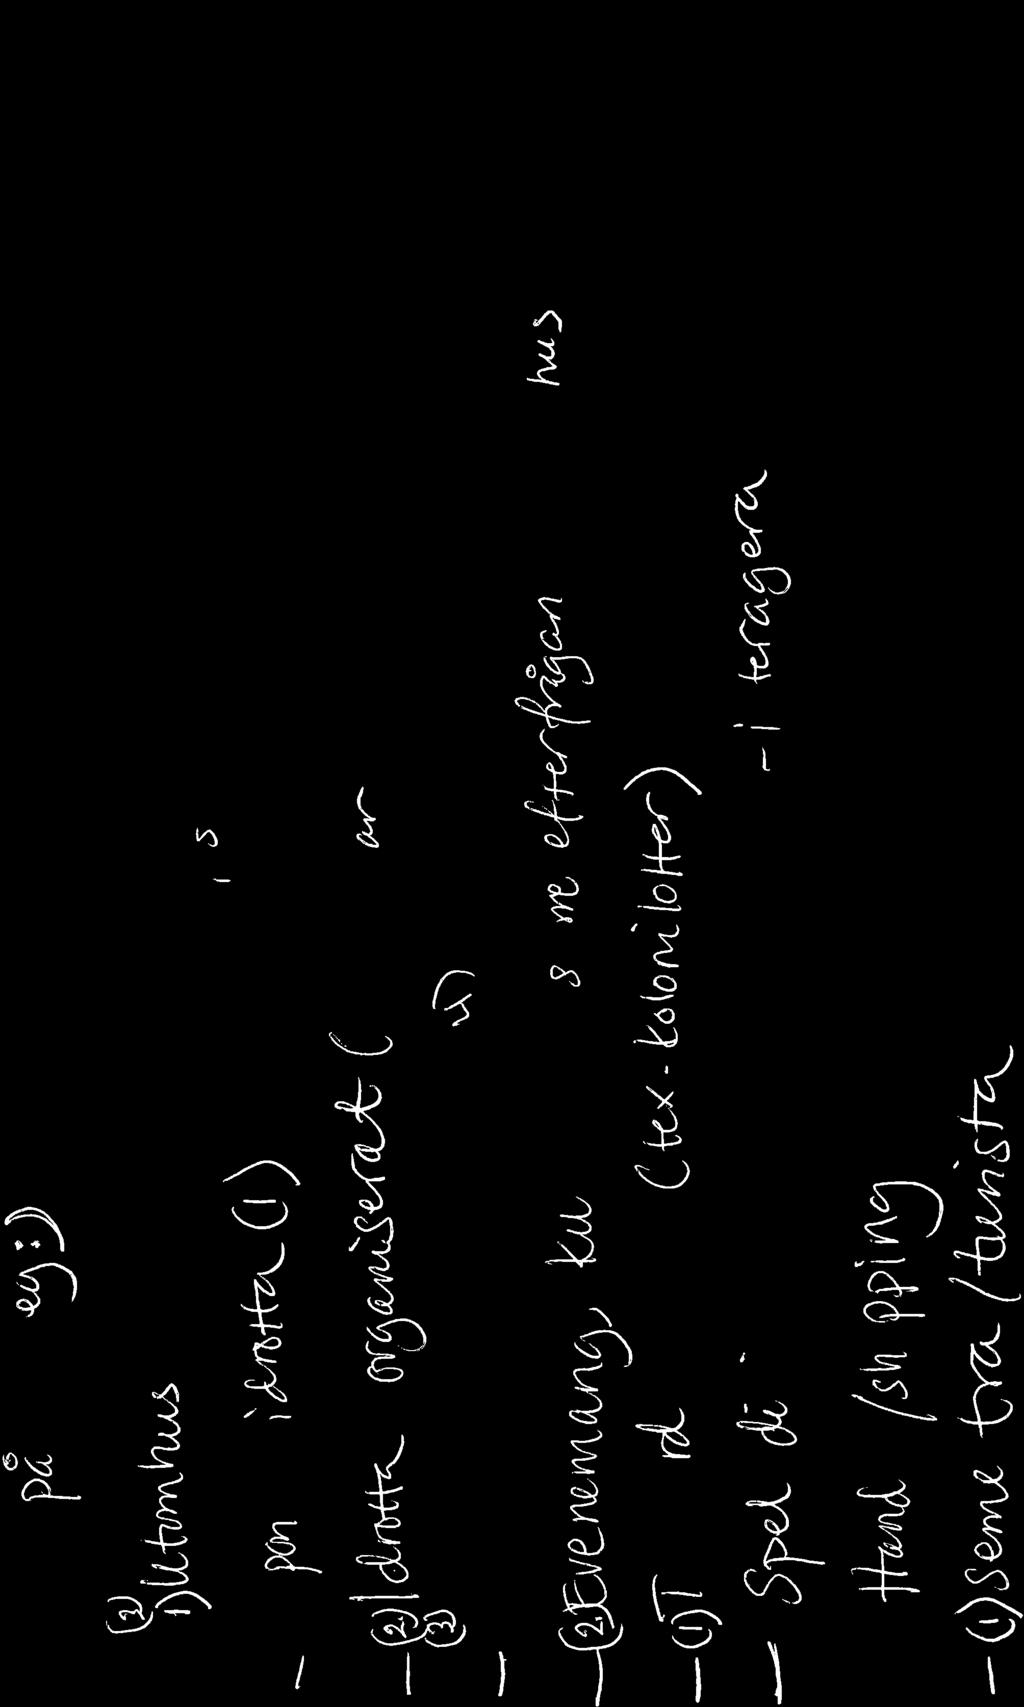 på eg:)
(3)
1) Utomhus
- pon idrotta (1)
-(2) Idrotta organiserat ( ar
- (3)
-(2) Evenemang, ku s me efterfrågan hus
-(1) T rd (tex. kolonilotter)
- Spel di - i teragera
Hand /sh pping
-(1) seme tra / turista